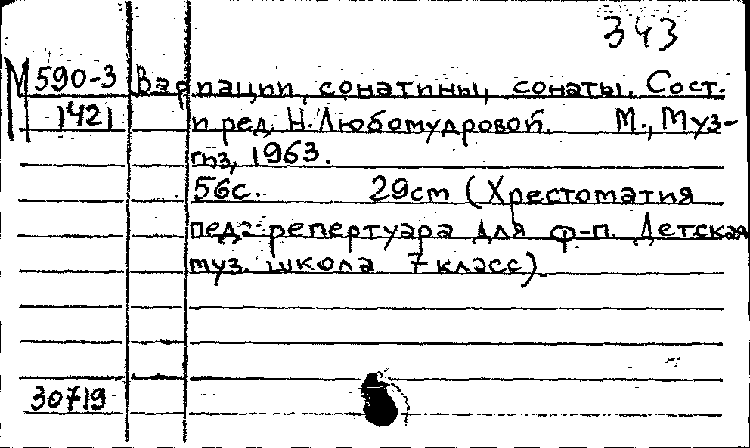 343
М 590-3 Вариации, сонатины, сонаты. Сост.
1421 и ред. Н. Любомудровой. М., Муз-
гиз, 1963.
56с. 29cm (Хрестоматия
пед. репертуара для ф-п. Детская
муз. школа 7 класс)
30719